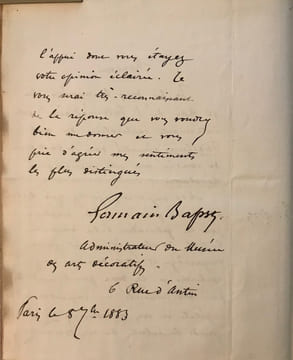 l'appui dont vous étayez
votre opinion éclairée. Je
vous serai très-reconnaissant
de la réponse que vous voudrez
bien me donner et vous
prie d'agréer mes sentiments
les plus distingués
Germain Bapst.
Administrateur du Musée
des arts décoratifs.
6 Rue d'Antin
Paris le 8 7bre 1883